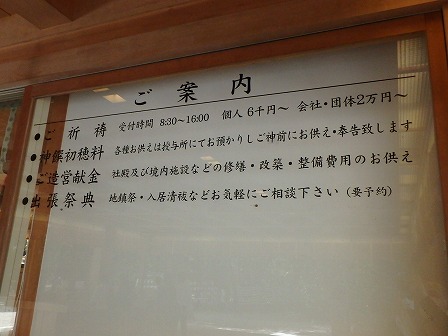 ご案内
●ご祈祷 受付時間 8:30～16:00 個人 6千円～ 会社・団体2万円～
●神饌初穂料 各種お供えは授与所にてお預かりしご神前にお供え・奉告致します
●ご造営献金 社殿及び境内施設などの修繕・改築・整備費用のお供え
●出張祭典 地鎮祭・入居清祓などお気軽にご相談下さい（要予約）